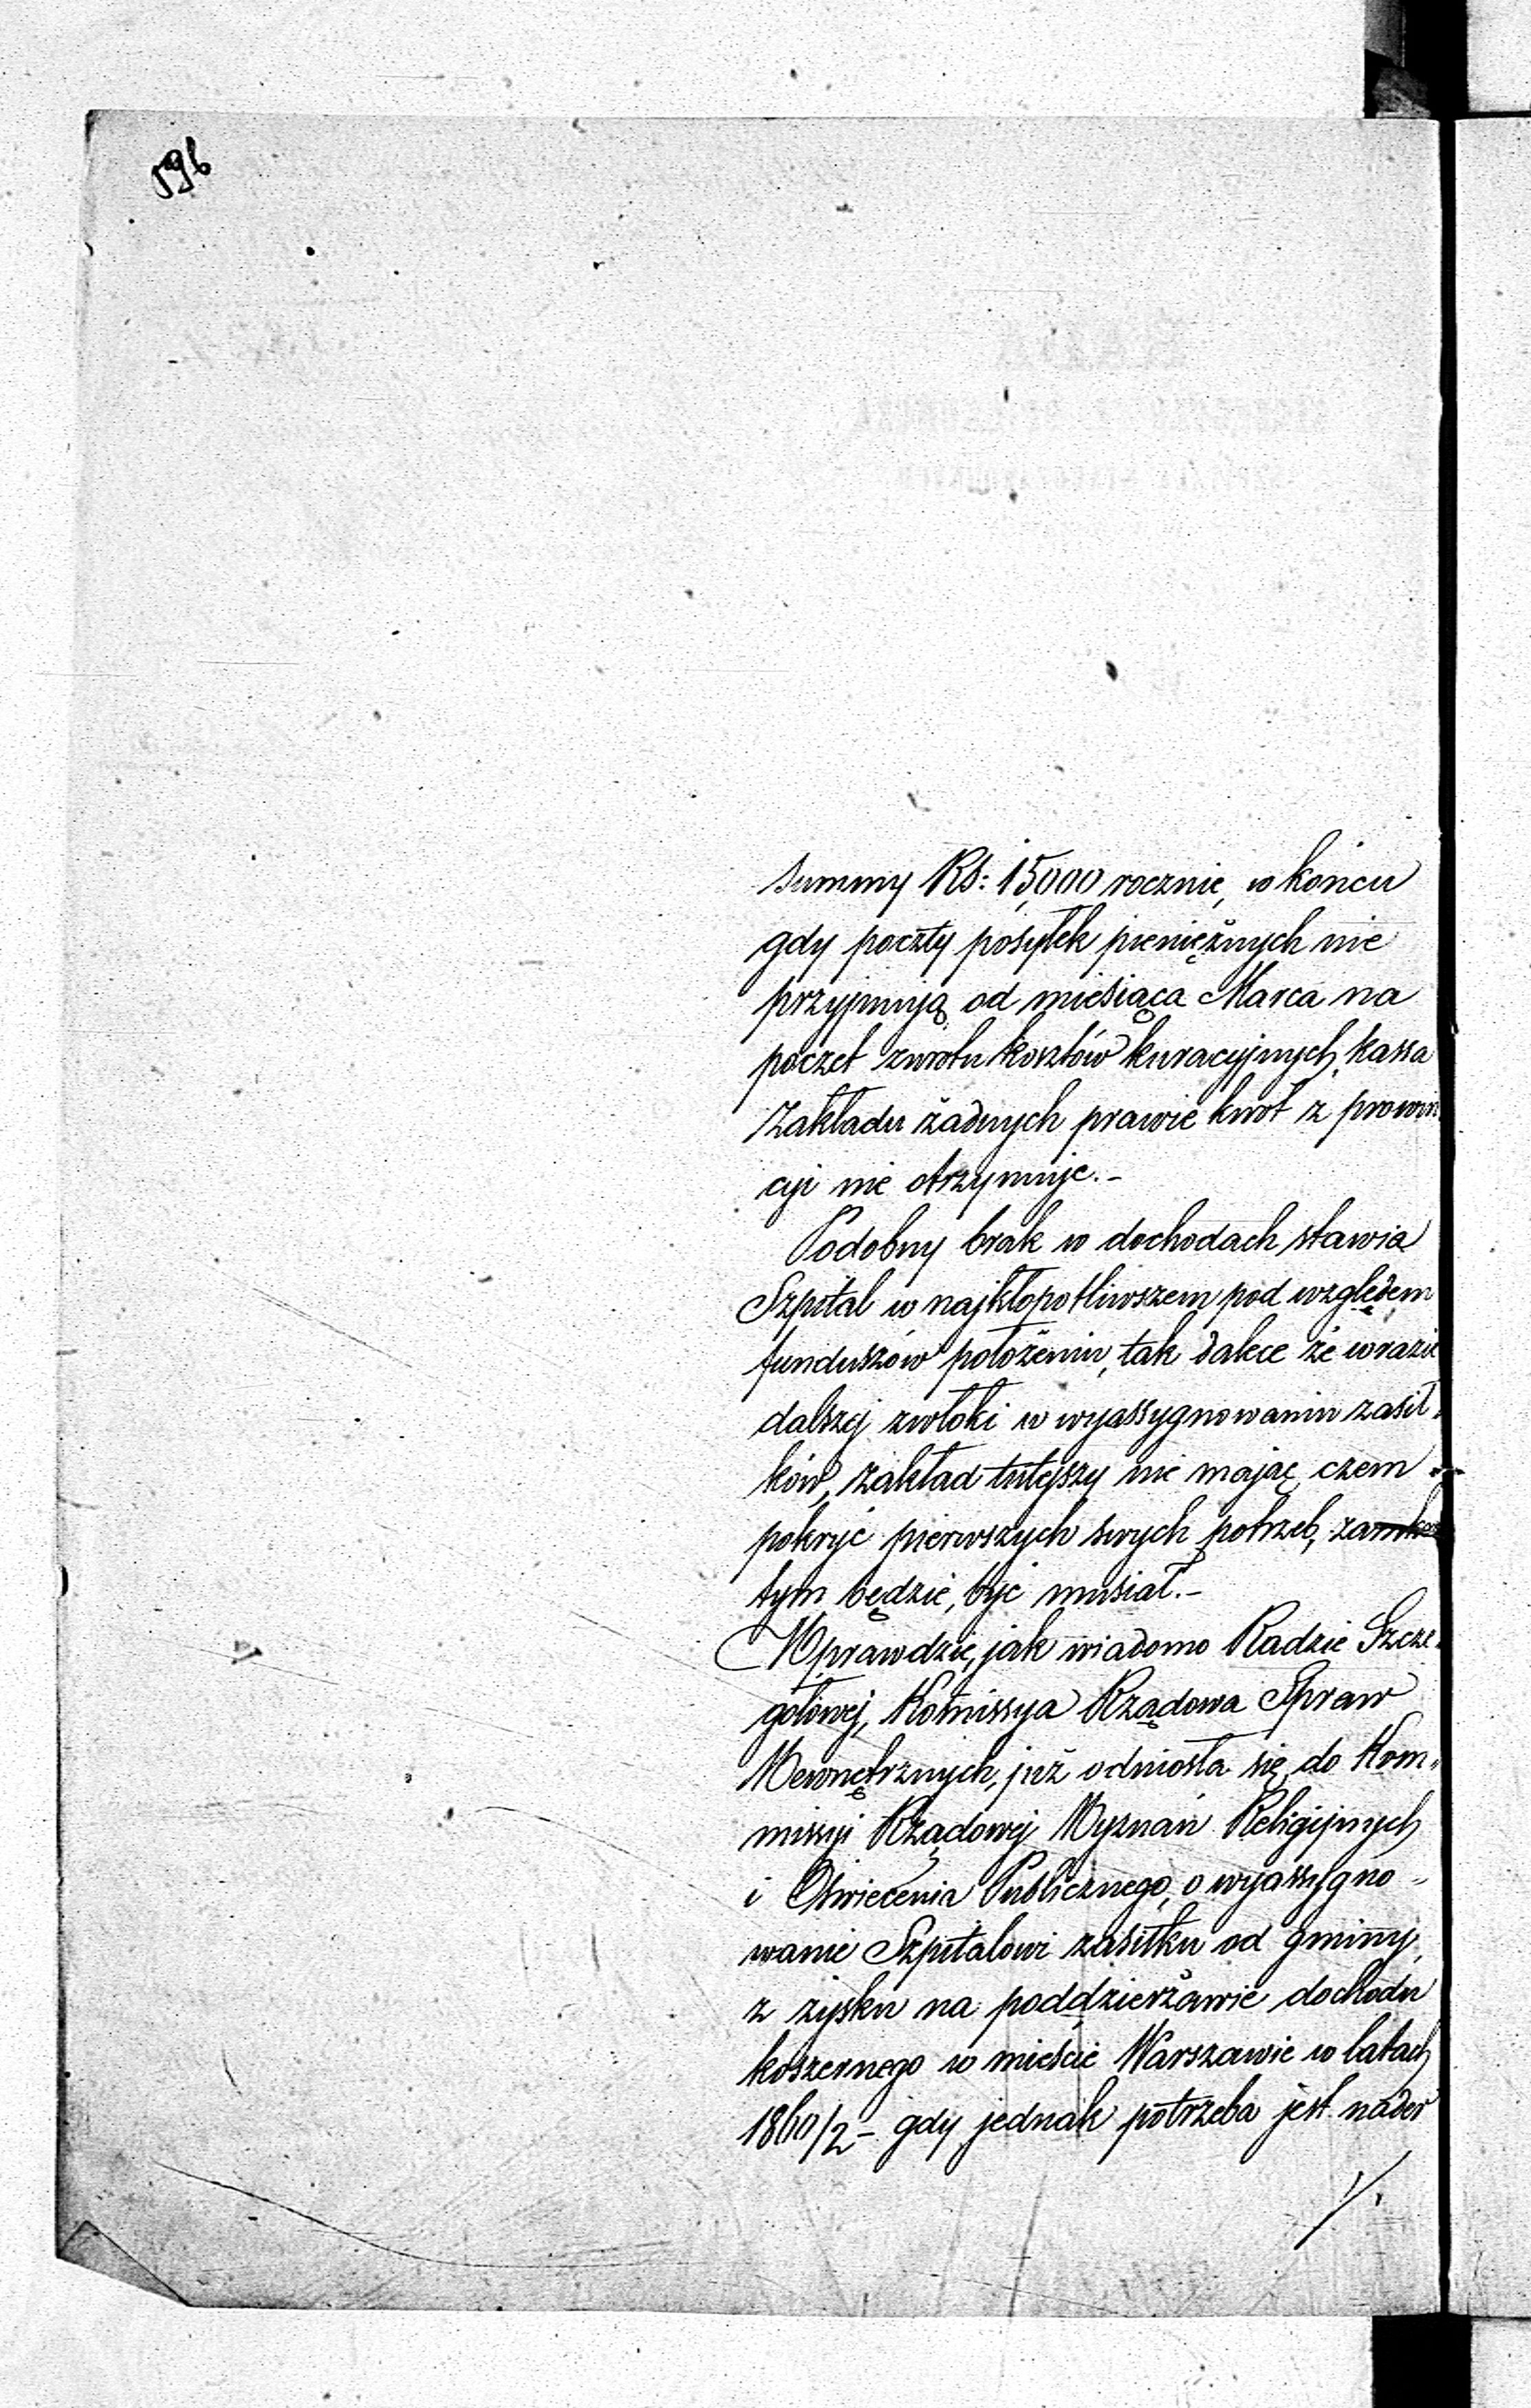 596
summy RS: 15,000 rocznie, w końcu
gdy poczty posyłek pieniężnych nie
przyjmują od miesiąca Marca na
poczet zwrotu kosztów kuracyjnych, kassa
Zakładu żadnych prawie kwot z prowin
cyi nie otrzymuje.-
Podobny brak w dochodach stawia
Szpital w najkłopotliwszem pod względem
funduszów położeniu, tak dalece że w razie
dalszej zwłoki w wyassygnowaniu zasił-
ków, zakład tutejszy nie mając czem
pokryć pierwszych swych potrzeb, zamknię
tym będzie, być musiał.-
Wprawdzie, jak wiadomo Radzie Szcze-
gółowej, Komissya Rządowa Spraw
Wewnętrznych, już odniosła się do Kom-
missyi Rządowej Wyznań Religijnych
i Oświecenia Publicznego, o wyassygno-
wanie Szpitalowi zasiłku od gminy,
z zysku na poddzierżawie dochodu
koszernego w mieście Warszawie w latach
1860/2 - gdy jednak potrzeba jest nader